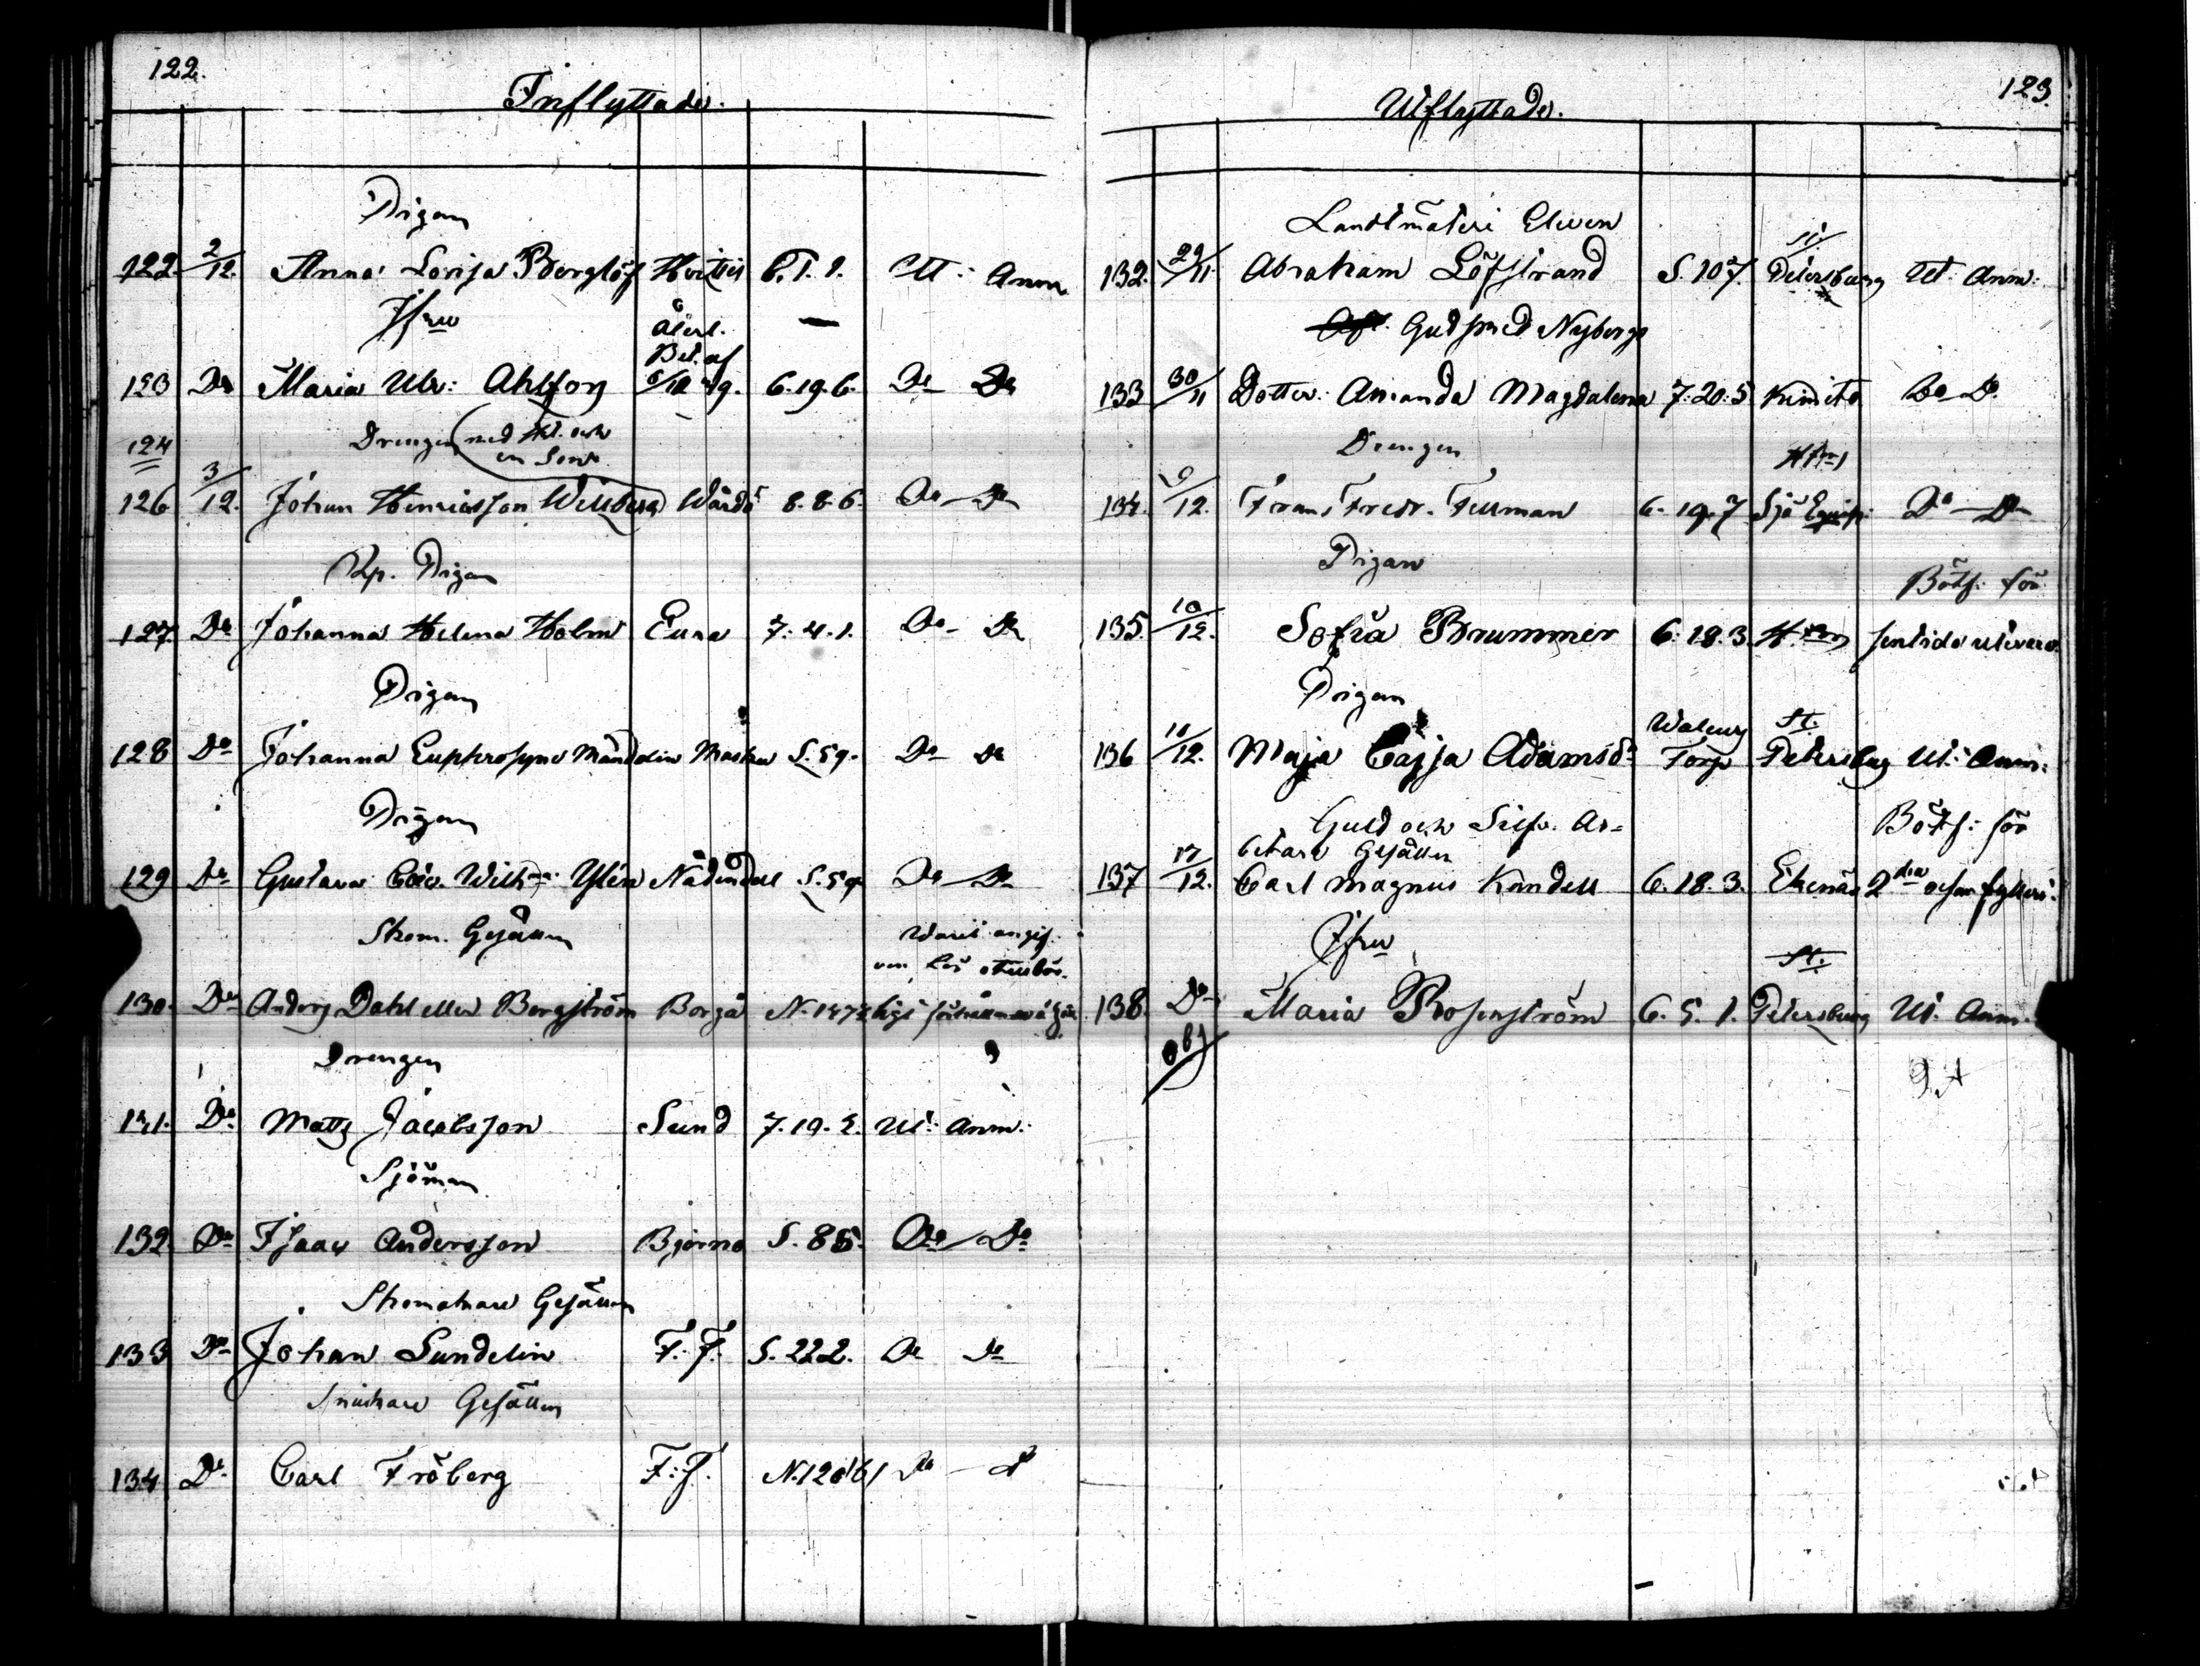 122.
Inflyttade.
Pigan
122. 2/12. Anna Lovisa Bergløf Hvittis 6.1.1. Ut: Anm.
Jfru Återl.
Bet. af
123 Do Maria Ulr: Ahlfors 6/10 49. 6.19.6. Do Do
124 Drengen (med H. och
en Son
126 3/12. Johan Henricsson Willberg) Wårdö 8.8.6. Do Do
Pigan
127. Do Johanna Helena Holm Eura 7.4.1. Do Do
Pigan
128 Do Johanna Euphrosyne Mandelin Masku S.59. Do Do
Pigan
129 Do Gustava Wilh:na Ylén Nådendal S.59. Do Do
Skom. Gesällen Warit angif.
130. Do Anders Dahl eller Bergström Borgå
Drengen
131. Do Matts Jacobsson Sund 7.19.2. Ut: Anm:
Sjöman
132. Do Isaac Andersson Bjerno S.85. Do Do
Skomakare Gesällen
133 Do Johan Sundelin F.F. S.222. Do Do
Snickare Gesällen
134 Do Carl Fröberg F.F. Do Do
123.
Utflyttade.
Landtmäteri Eleven St.
132. 29/11 Abraham Löfstrand S.107. Petersburg Ut. Anm:
Gudfried Nybergs
133 30/11 Dotter: Amanda Magdalena 7.20.5 Kimito Do Do
Drengen H:fors
134. 9/12. Frans Fredr. Fellman 6.19.7 Sjö Equip: Do Do
Pigan Bötf: för
135. 10/12. Sofia Brummer 6.18.3. H:fors sentida utevaro
Pigan
136 11/12. Maja Cajsa Adamsdr Torp St. Petersburg Ut: Anm:
Guld och Silfv. Ar= Bötf: för
betare Gesällen
137 17/12. Carl Magnus Kandell 6.18.3. Ekenäs 2dra fylleri.
Jfru St.
138. Do Maria Rosenström 6.5.1. Petersburg Ut. Anm.